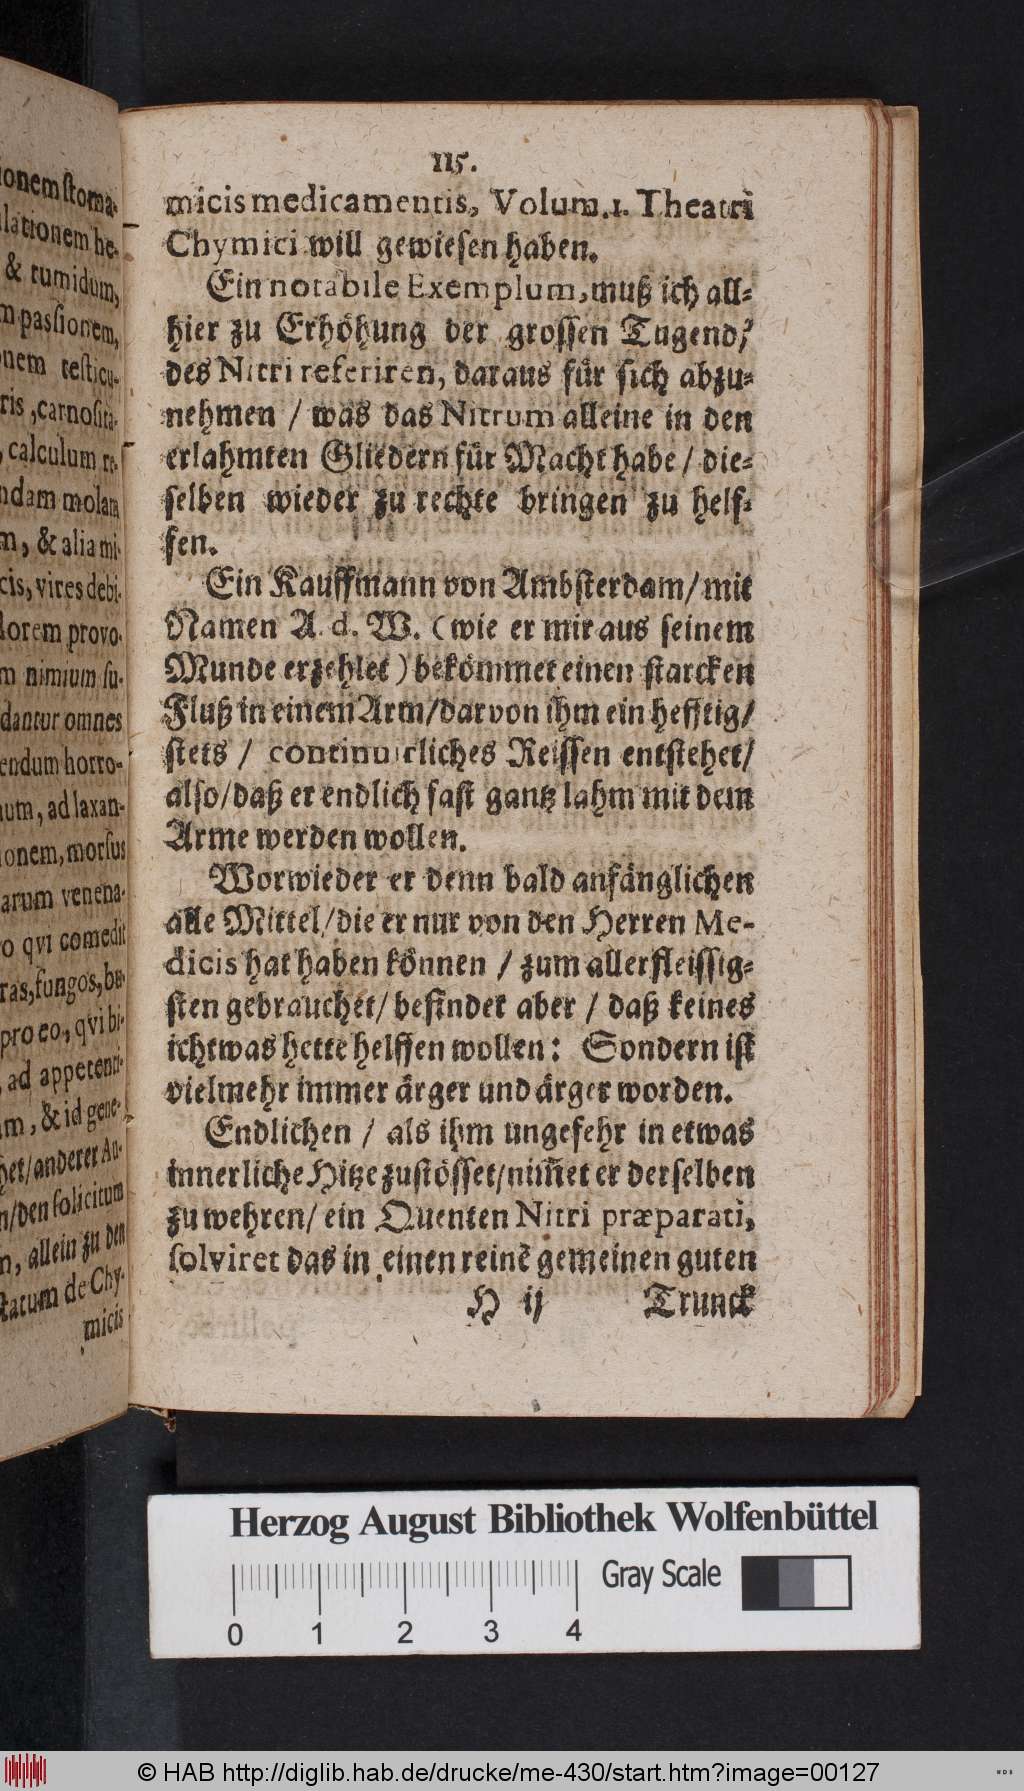 onem stoma-
lationem he-
& tumidum,
m passionem,
onem testicu-
ris, carnosita-
, calculum re-
ndam molam
m, & alia mi-
cis, vires debi-
lorem provo-
m nimium su-
dantur omnes
endum horro-
num, ad laxan-
ionem, morsus
arum venena-
o qvi comedit
ras, fungos, be-
pro eo, qvi bi-
, ad appetenti-
m, & id gene-
het / anderer Au-
n / den solicitum
n, allein zu den
statum de Chy-
micis
115.
micis medicamentis, Volum. 1. Theatri
Chymici will gewiesen haben.
Ein notabile Exemplum, muß ich all-
hier zu Erhöhung der grossen Tugend /
des Nitri referiren, daraus für sich abzu-
nehmen / was das Nitrum alleine in den
erlahmten Gliedern für Macht habe / die-
selben wieder zu rechte bringen zu helf-
fen.
Ein Kauffmann von Ambsterdam / mit
Namen A. d. W. (wie er mir aus seinem
Munde erzehlet) bekömmet einen starcken
Fluß in einem Arm / darvon ihm ein hefftig /
stets / continuirliches Reissen entstehet /
also / daß er endlich fast gantz lahm mit dem
Arme werden wollen.
Worwieder er denn bald anfänglichen
alle Mittel / die er nur von den Herren Me-
dicis hat haben können / zum allerfleissig-
sten gebrauchet / befindet aber / daß keines
ichtwas hette helffen wollen: Sondern ist
vielmehr immer ärger und ärger worden.
Endlichen / als ihm ungefehr in etwas
innerliche Hitze zustösset / nim̃et er derselben
zu wehren / ein Quenten Nitri præparati,
solviret das in einen reinẽ gemeinen guten
H ij Trunck
Herzog August Bibliothek Wolfenbüttel
Gray Scale
0 1 2 3 4
© HAB http://diglib.hab.de/drucke/me-430/start.htm?image=00127